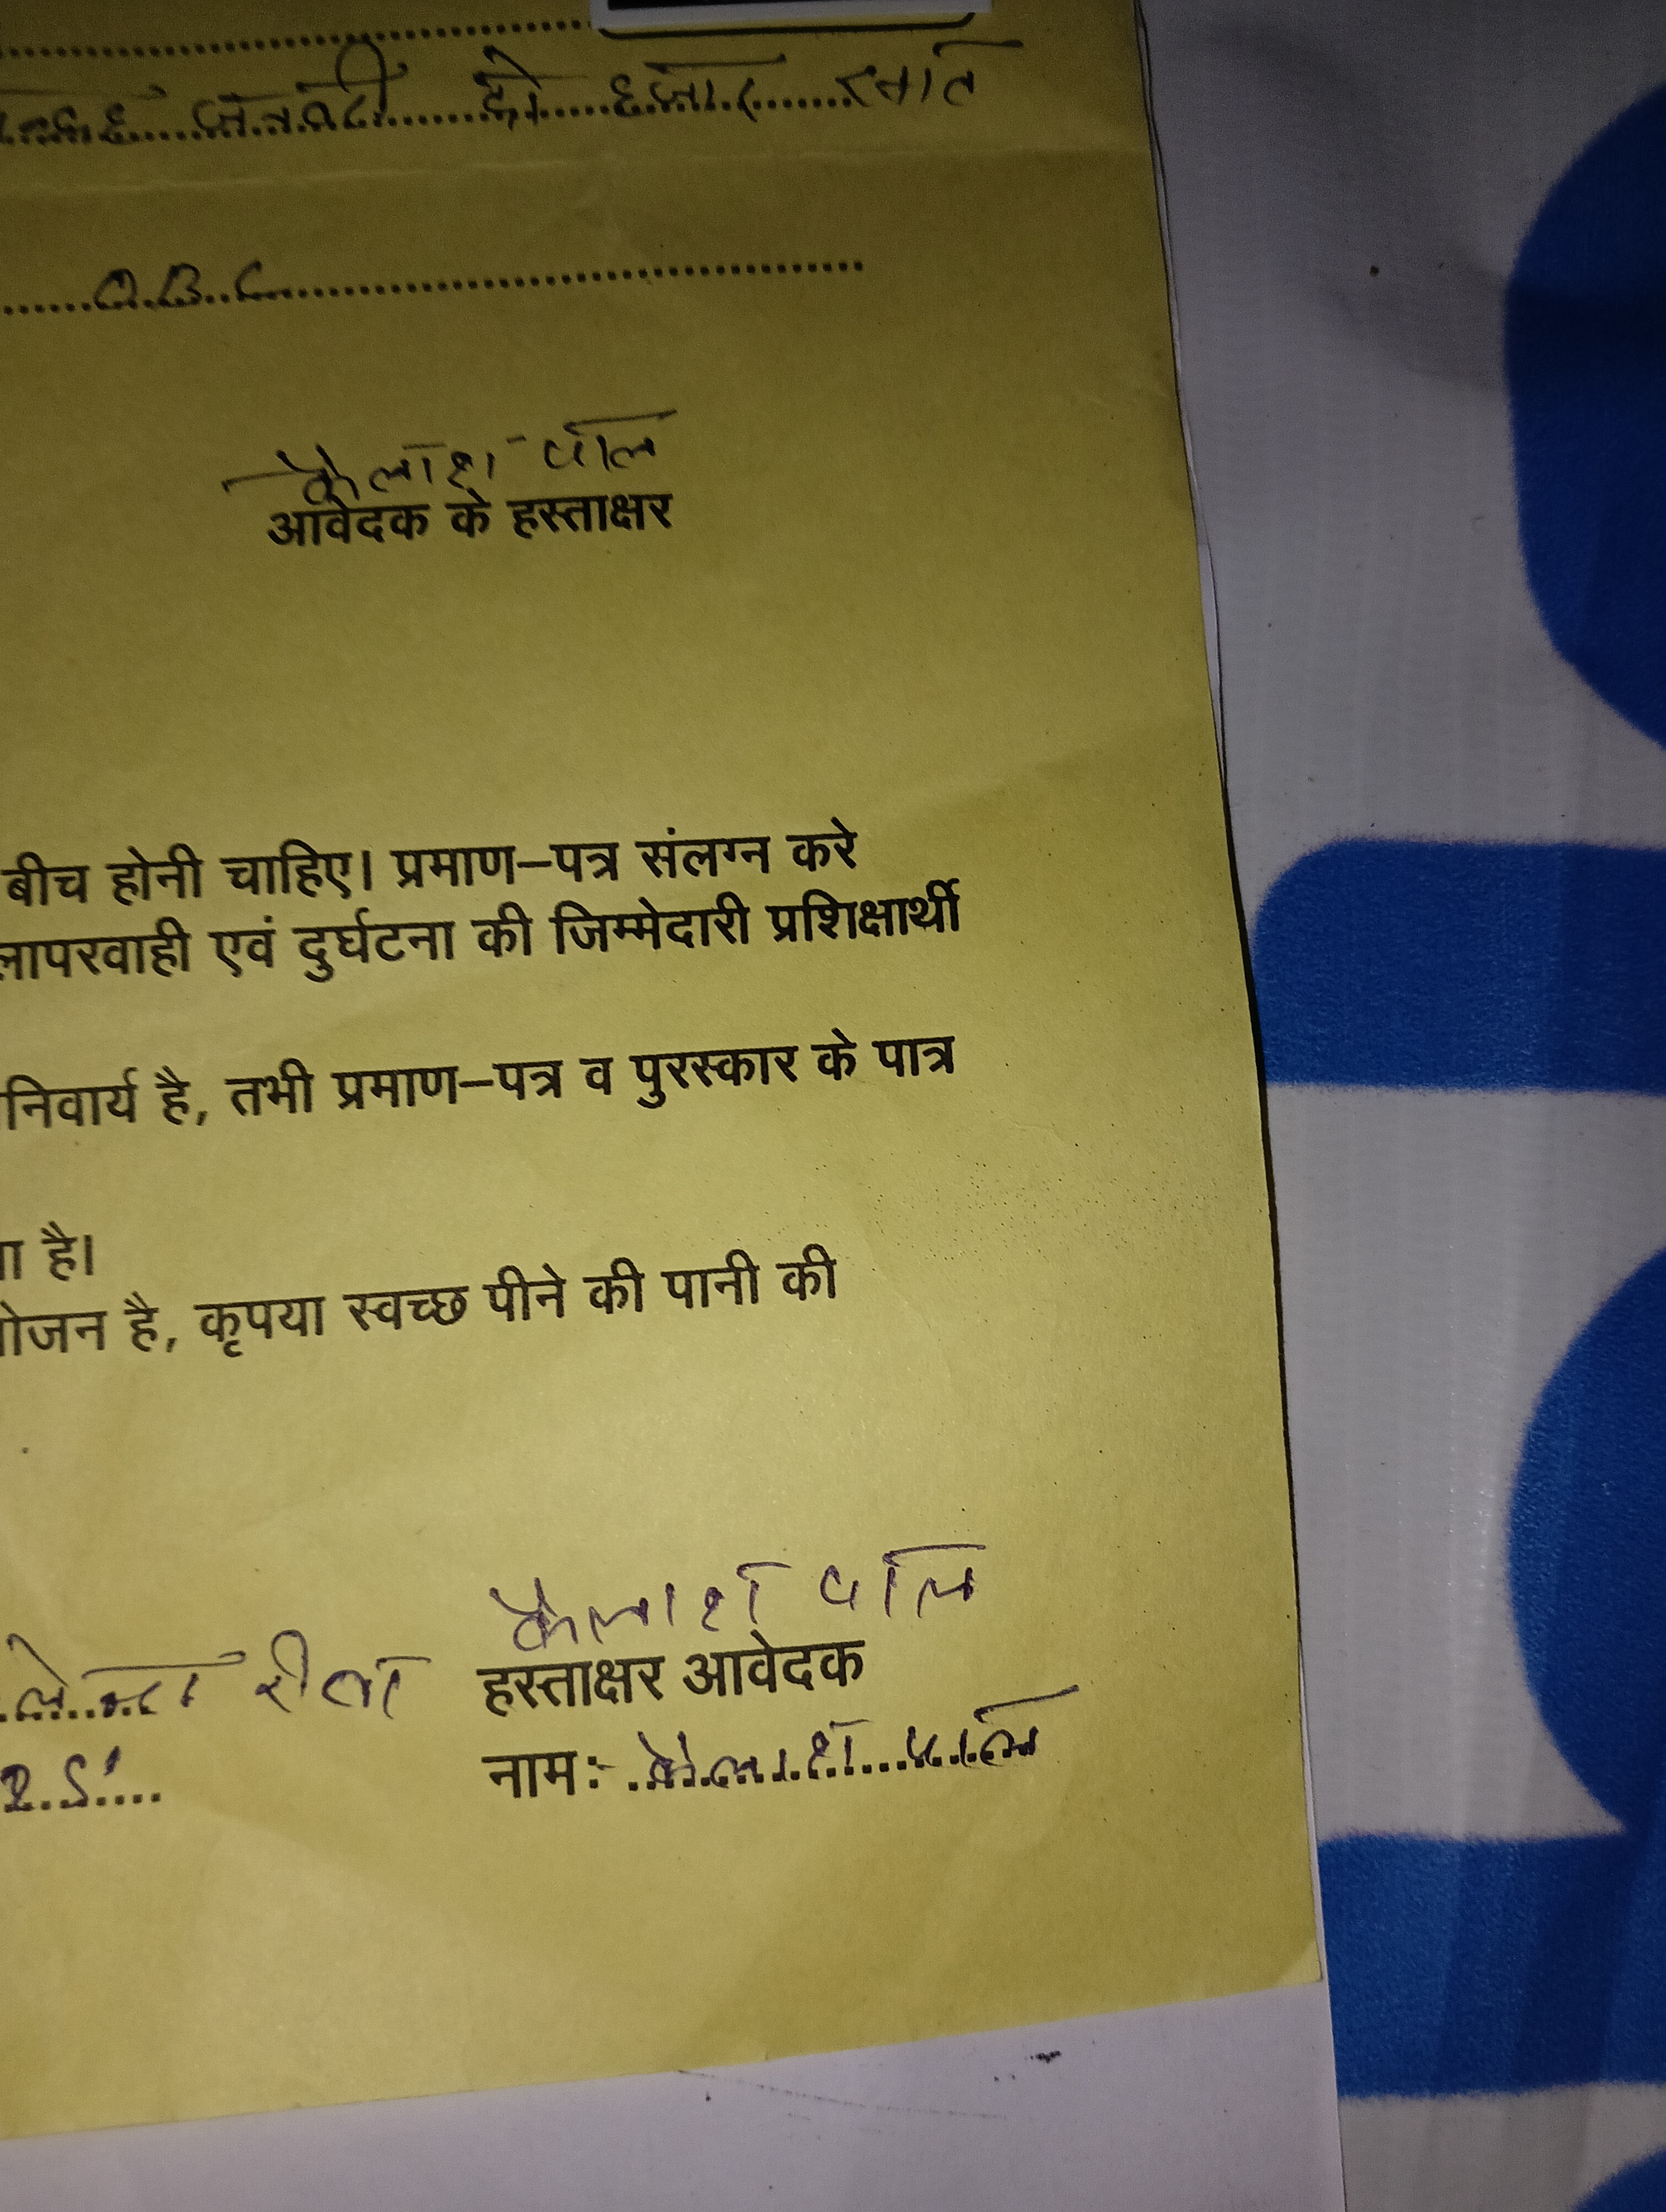 जनवरी दो हजार सात
O.B.C
कैलाश पाल
आवेदक के हस्ताक्षर
बीच होनी चाहिए। प्रमाण–पत्र संलग्न करे
लापरवाही एवं दुर्घटना की जिम्मेदारी प्रशिक्षार्थी
निवार्य है, तभी प्रमाण–पत्र व पुरस्कार के पात्र
है।
है, कृपया स्वच्छ पीने की पानी की
कैलाश पाल
हस्ताक्षर आवेदक
नामः- कैलाश पाल